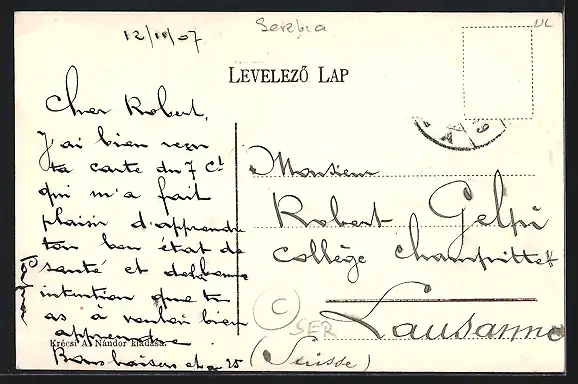 12/11/07
Serbia
LEVELEZŐ LAP
Cher Robert,
J'ai bien reçu
ta carte du 7 Ct
qui m'a fait
plaisir d'apprendre
ton bon état de
santé et de la bonne
intention que tu
as à vouloir bien
apprendre
Krécsi A. Nándor kiadása.
Monsieur
Robert Gelpi
collège Champittet
Lausanne
(Suisse)
C
SER
25